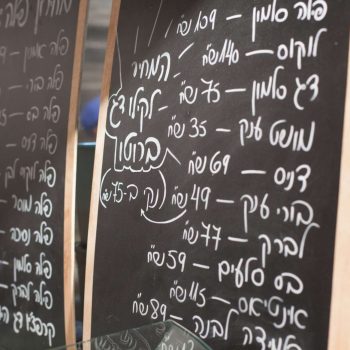 פלה סלמון – 139 ש"ח
לוקוס – 140 ש"ח
דג סלמון – 75 ש"ח
מושט ענק – 35 ש"ח
דניס – 69 ש"ח
בורי ענק – 49 ש"ח
לברק – 77 ש"ח
בס סלעים – 59 ש"ח
אינטיאס – 115 ש"ח
לבנה – 89 ש"ח
המחיר
לקילו דג
ברוטו
(נקי ב-75 ש"ח)
פלה
פלה אמנון
פלה בורי
פלה בס
פלה דניס
פלה לוקוס לבן
פלה מוסר
פלה נסיכה
פלה סלמון
פלה לברק